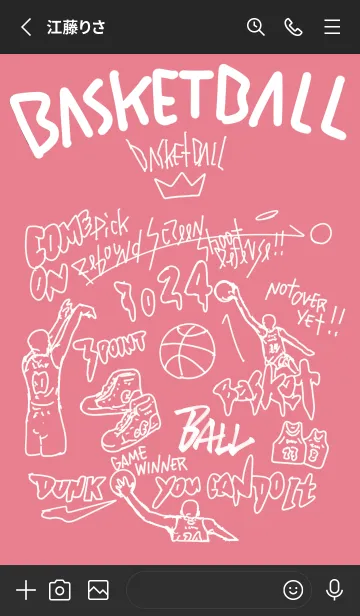 江藤りさ
BASKETBALL
BASKETBALL
COME ON
Pick
Rebound
Screen
Shoot
Defense!!
2024
NOT OVER
YET!!
3 POINT
Basket
BALL
GAME
WINNER
DUNK
YOU CAN DO It